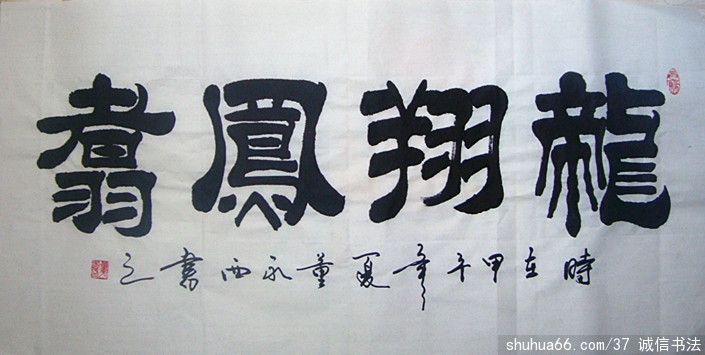 龍翔鳳翥
時在甲午年夏董永西書之
shuhua66.com/37 诚信书法